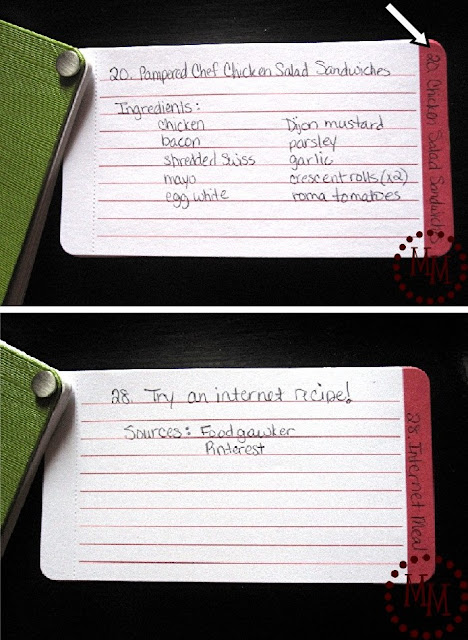 20. Pampered Chef Chicken Salad Sandwiches
20. Chicken Salad Sandwiches
Ingredients:
chicken Dijon mustard
bacon parsley
shredded Swiss garlic
mayo crescent rolls (x2)
egg white roma tomatoes
MM
28. Try an internet recipe!
28. Internet Meal
Sources: Foodgawker
Pinterest
MM